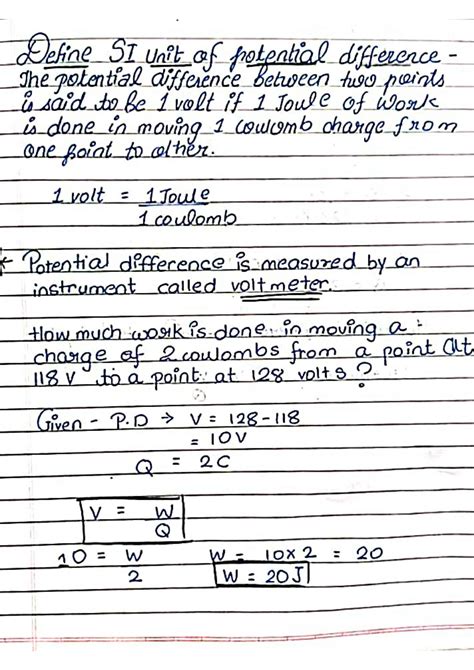 Define SI Unit of potential difference -
The potential difference between two points
is said to be 1 volt if 1 Joule of Work
is done in moving 1 coulomb charge from
one point to other.
1 volt = 1 Joule
1 coulomb
* Potential difference is measured by an
instrument called voltmeter.
How much work is done in moving a
charge of 2 coulombs from a point at
118 V to a point at 128 volts ?
Given - P.D → V = 128 - 118
= 10V
Q = 2C
V = W
Q
10 = W W = 10 x 2 = 20
2 W = 20J